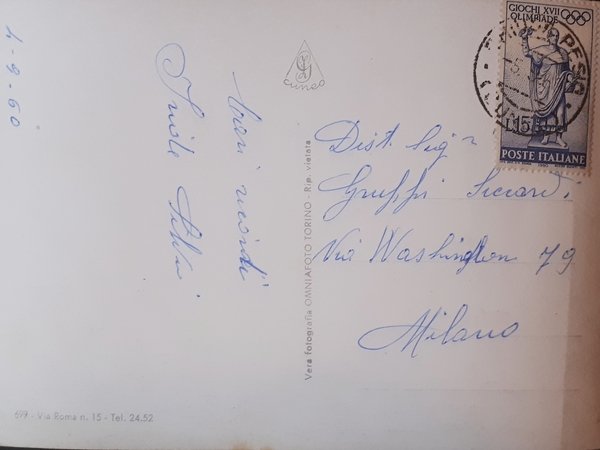 4-9-60
Cari ricordi
GIOCHI XVII
OLIMPIADE
L.15
POSTE ITALIANE
CUNEO
Dist. Sig.
Gruppi
Via Washington 79
Milano
Vera fotografia OMNIAFOTO TORINO - Rip. vietata
699 - Via Roma n. 15 - Tel. 24.52